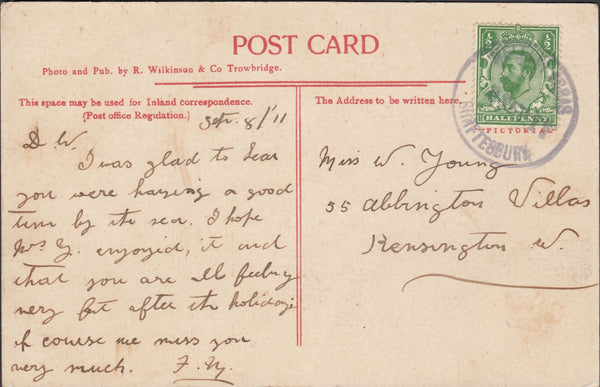 POST CARD
Photo and Pub. by R. Wilkinson & Co Trowbridge.
This space may be used for Inland correspondence.
(Post office Regulation.)
Sep. 8/'11
D. W.
I was glad to hear
you were having a good
time by the sea. I hope
Mrs Y. enjoyied, it and
that you are all feeling
very fit after the holidays
of course we miss you
very much. F. Ny.
The Address to be written here.
Miss W. Young
55 Abbington Villas
Kensington W.
½ ½
HALFPENNY
PICTORIAL
SHAFTESBURY